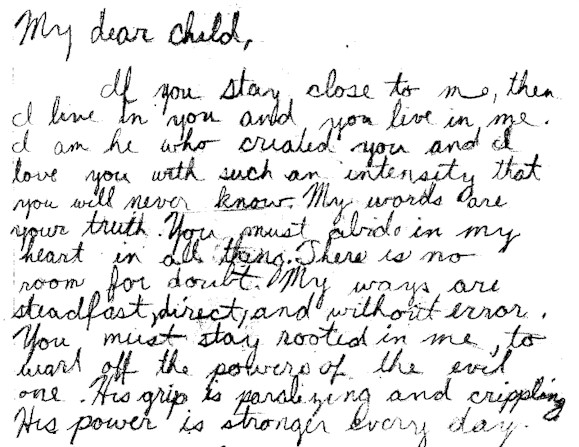 My dear child,
If you stay close to me, then
I live in you and you live in me.
I am he who created you and I
love you with such an intensity that
you will never know. My words are
your truth. You must abide in my
heart in all thing. There is no
room for doubt. My ways are
steadfast, direct, and without error.
You must stay rooted in me, to
ward off the powers of the evil
one. His grip is paralizing and crippling
His power is stronger every day.